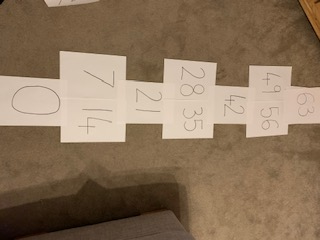 0
7 14
21
28 35
42
49 56
63